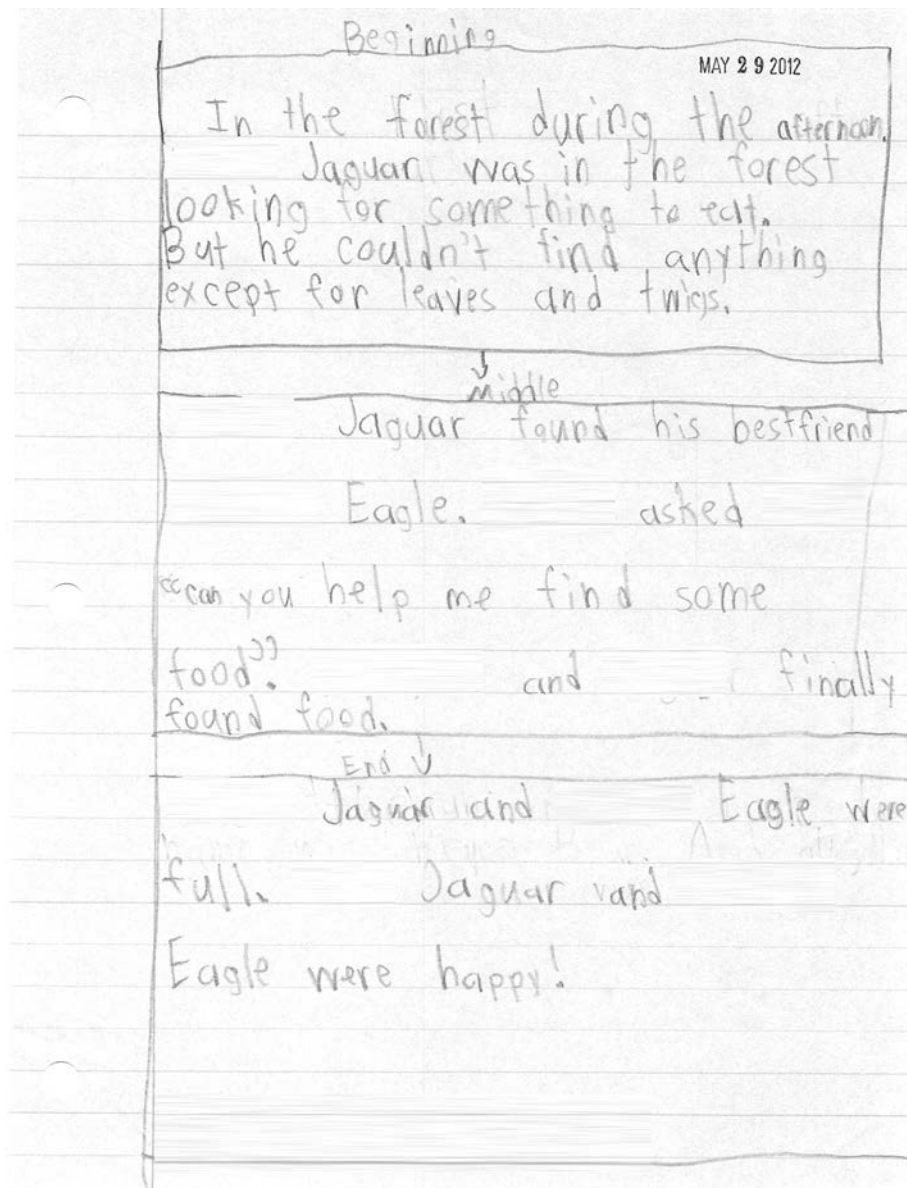 Beginning
MAY 29 2012
In the forest during the afternoon.
Jaguar was in the forest
looking for something to eat.
But he couldn't find anything
except for leaves and twigs.
Middle
Jaguar found his bestfriend
Eagle. asked
"can you help me find some
food"? and finally
found food.
End
Jaguar and Eagle were
full. Jaguar and
Eagle were happy!